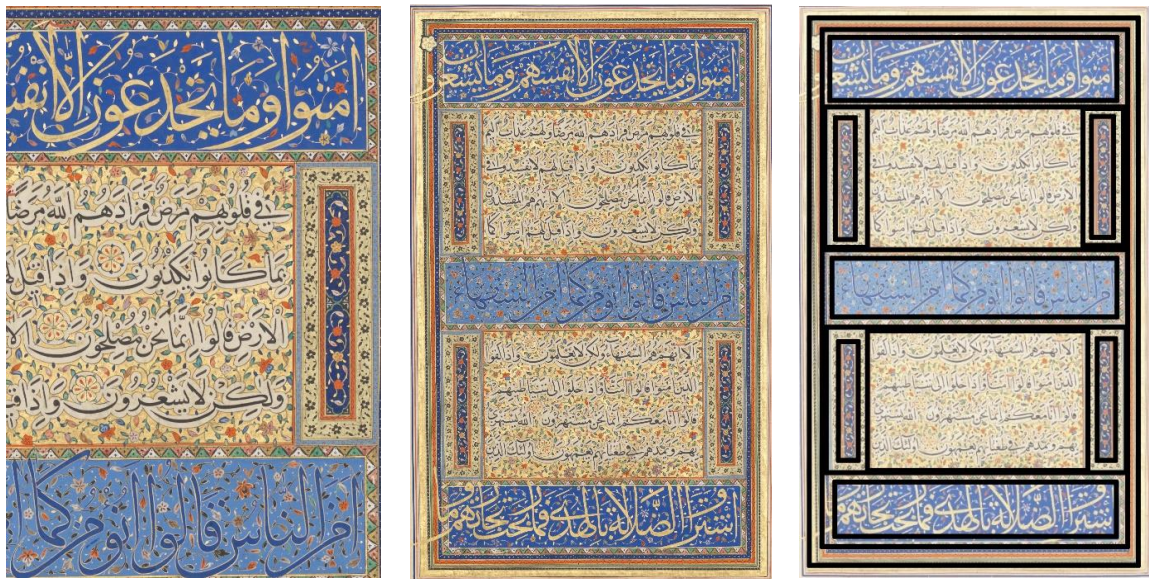 امنوا وما يخدعون الا انفس
في قلوبهم مرض فزادهم الله مرضا
بما كانوا يكذبون واذا قيل
الارض قالوا انما نحن مصلحون
ولكن لا يشعرون واذا
امن الناس قالوا انؤمن كما
امنوا وما يخدعون الا انفسهم وما يشعرون
في قلوبهم مرض فزادهم الله مرضا ولهم عذاب اليم
بما كانوا يكذبون واذا قيل لهم لا تفسدوا في
الارض قالوا انما نحن مصلحون الا انهم هم المفسدون
ولكن لا يشعرون واذا قيل لهم امنوا كما
امن الناس قالوا انؤمن كما امن السفهاء
الا انهم هم السفهاء ولكن لا يعلمون واذا لقوا
الذين امنوا قالوا امنا واذا خلوا الى شياطينهم
قالوا انا معكم انما نحن مستهزؤن الله يستهزئ
بهم ويمدهم في طغيانهم يعمهون اولئك الذين
اشتروا الضلالة بالهدى فما ربحت تجارتهم وما
امنوا وما يخدعون الا انفسهم وما يشعرون
في قلوبهم مرض فزادهم الله مرضا ولهم عذاب اليم
بما كانوا يكذبون واذا قيل لهم لا تفسدوا في
الارض قالوا انما نحن مصلحون الا انهم هم المفسدون
ولكن لا يشعرون واذا قيل لهم امنوا كما
امن الناس قالوا انؤمن كما امن السفهاء
الا انهم هم السفهاء ولكن لا يعلمون واذا لقوا
الذين امنوا قالوا امنا واذا خلوا الى شياطينهم
قالوا انا معكم انما نحن مستهزؤن الله يستهزئ
بهم ويمدهم في طغيانهم يعمهون اولئك الذين
اشتروا الضلالة بالهدى فما ربحت تجارتهم وما